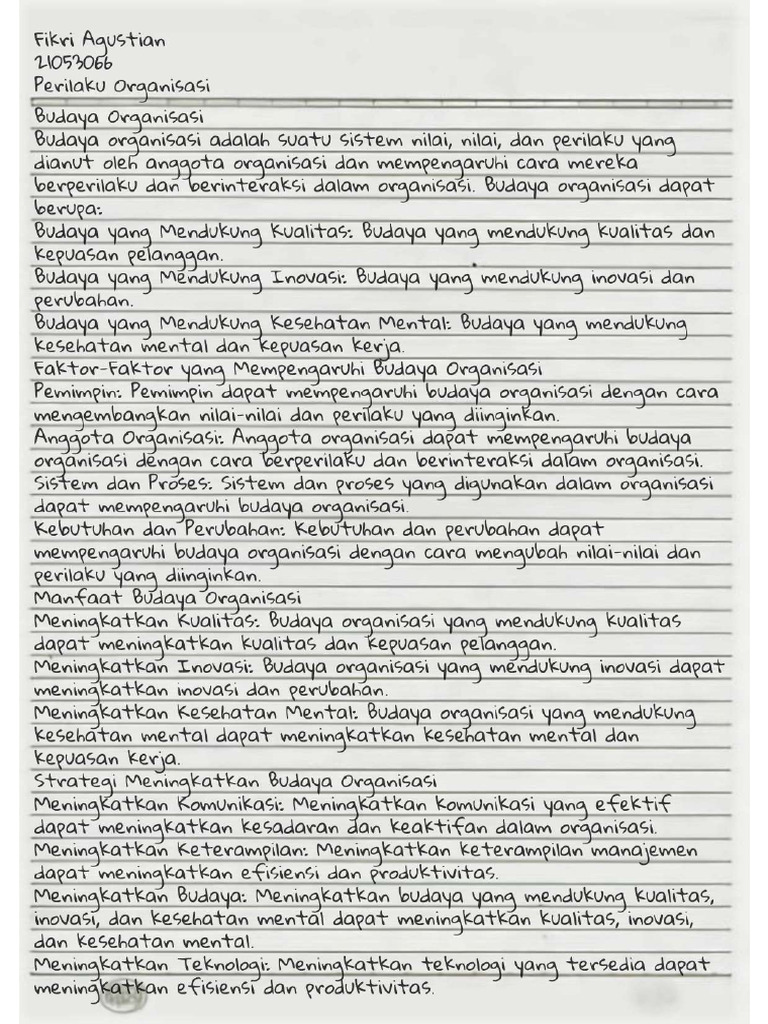 Fikri Agustian
21053066
Perilaku Organisasi
Budaya Organisasi
Budaya organisasi adalah suatu sistem nilai, nilai, dan perilaku yang
dianut oleh anggota organisasi dan mempengaruhi cara mereka
berperilaku dan berinteraksi dalam organisasi. Budaya organisasi dapat
berupa:
Budaya yang Mendukung Kualitas: Budaya yang mendukung kualitas dan
kepuasan pelanggan.
Budaya yang Mendukung Inovasi: Budaya yang mendukung inovasi dan
perubahan.
Budaya yang Mendukung Kesehatan Mental: Budaya yang mendukung
kesehatan mental dan kepuasan kerja.
Faktor-Faktor yang Mempengaruhi Budaya Organisasi
Pemimpin: Pemimpin dapat mempengaruhi budaya organisasi dengan cara
mengembangkan nilai-nilai dan perilaku yang diinginkan.
Anggota Organisasi: Anggota organisasi dapat mempengaruhi budaya
organisasi dengan cara berperilaku dan berinteraksi dalam organisasi.
Sistem dan Proses: Sistem dan proses yang digunakan dalam organisasi
dapat mempengaruhi budaya organisasi.
Kebutuhan dan Perubahan: Kebutuhan dan perubahan dapat
mempengaruhi budaya organisasi dengan cara mengubah nilai-nilai dan
perilaku yang diinginkan.
Manfaat Budaya Organisasi
Meningkatkan Kualitas: Budaya organisasi yang mendukung kualitas
dapat meningkatkan kualitas dan kepuasan pelanggan.
Meningkatkan Inovasi: Budaya organisasi yang mendukung inovasi dapat
meningkatkan inovasi dan perubahan.
Meningkatkan Kesehatan Mental: Budaya organisasi yang mendukung
kesehatan mental dapat meningkatkan kesehatan mental dan
kepuasan kerja.
Strategi Meningkatkan Budaya Organisasi
Meningkatkan Komunikasi: Meningkatkan komunikasi yang efektif
dapat meningkatkan kesadaran dan keaktifan dalam organisasi.
Meningkatkan Keterampilan: Meningkatkan keterampilan manajemen
dapat meningkatkan efisiensi dan produktivitas.
Meningkatkan Budaya: Meningkatkan budaya yang mendukung kualitas,
inovasi, dan kesehatan mental dapat meningkatkan kualitas, inovasi,
dan kesehatan mental.
Meningkatkan Teknologi: Meningkatkan teknologi yang tersedia dapat
meningkatkan efisiensi dan produktivitas.